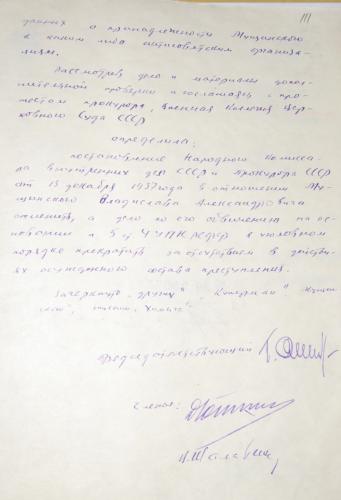 111
данных о принадлежности Мущинского
к каким либо антисоветским организа-
циям.
Рассмотрев дело и материалы допол-
нительной проверки и соглашаясь с про-
тестом прокурора, Военная Коллегия Вер-
ховного Суда СССР
определила:
постановление Народного Комисса-
ра внутренних дел СССР и Прокурора СССР
от 15 декабря 1937 года в отношении Му-
щинского Владислава Александровича
отменить, а дело по его обвинению на ос-
новании п 5 ст 4 УПК РСФСР в уголовном
порядке прекратить за отсутствием в действи-
ях осужденного состава преступления.
Зачеркнуто
Председательствующий
Члены: